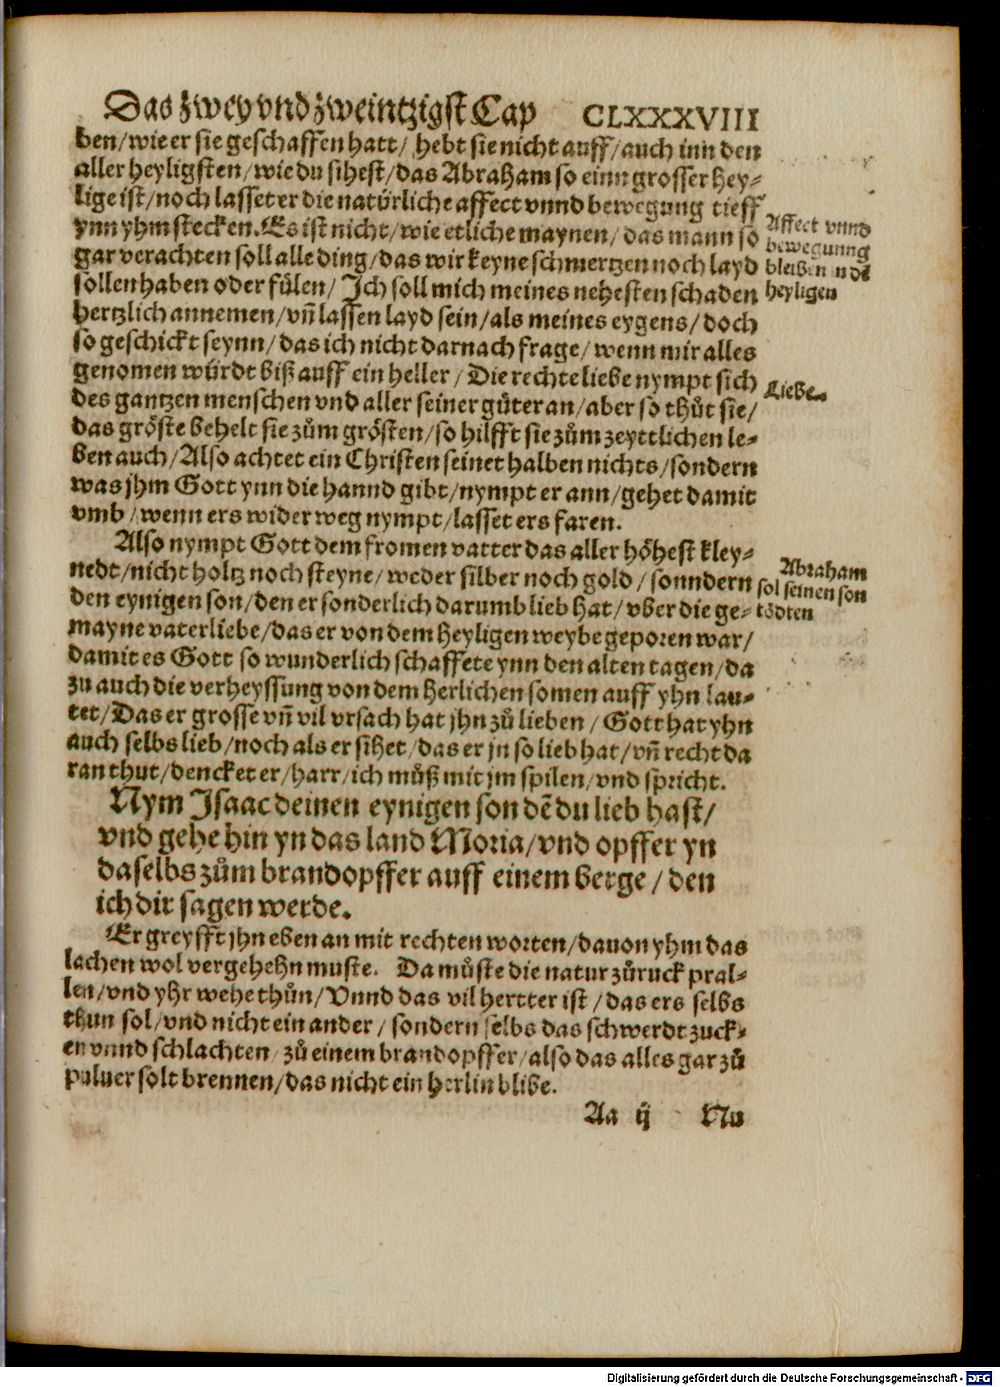 Das zwey vnd zweintzigst Cap CLXXXVIII
ben/wie er sie geschaffen hatt/ hebt sie nicht auff/auch inn den
aller heyligsten/wie du sihest/das Abraham so einn grosser hey-
lige ist/noch lasset er die natürliche affect vnnd bewegung tieff
ynn yhm stecken. Es ist nicht/wie etliche maynen/das mann so
gar verachten soll alle ding/das wir keyne schmertzen noch layd
sollen haben oder fülen/ Ich soll mich meines nehesten schaden
hertzlich annemen/vñ lassen layd sein/als meines eygens/doch
so geschickt seynn/das ich nicht darnach frage/wenn mir alles
genomen würdt biß auff ein heller/Die rechte liebe nympt sich
des gantzen menschen vnd aller seiner güter an/aber so thůt sie/
das gröste behelt sie zům grösten/so hilfft sie zům zeyttlichen le-
ben auch/Also achtet ein Christen seinet halben nichts/sondern
was jhm Gott ynn die hannd gibt/nympt er ann/gehet damit
vmb/wenn ers wider weg nympt/lasset ers faren.
Affect vnnd
bewegunng
bleiben
heyligen
Liebe.
Also nympt Gott dem fromen vatter das aller höhest kley-
nedt/nicht holtz noch steyne/weder silber noch gold/sonndern
den eynigen son/den er sonderlich darumb lieb hat/vber die ge-
mayne vaterliebe/das er von dem heyligen weybe geporen war/
damit es Gott so wunderlich schaffete ynn den alten tagen/da
zu auch die verheyssung von dem herlichen somen auff yhn lau-
tet/Das er grosse vñ vil vrsach hat jhn zů lieben/Gott hat yhn
auch selbs lieb/noch als er sihet/das er jn so lieb hat/vñ recht da
ran thut/dencket er/harr/ich můß mit jm spilen/vnd spricht.
Abraham
sol seinen son
tödten
Nym Isaac deinen eynigen son dē du lieb hast/
vnd gehe hin yn das land Moria/vnd opffer yn
daselbs zům brandopffer auff einem berge/den
ich dir sagen werde.
Er greyfft jhn eben an mit rechten worten/dauon yhm das
lachen wol vergehehn muste. Da můste die natur zůruck pral-
len/vnd yhr wehe thůn/Vnnd das vil hertter ist/das ers selbs
thun sol/vnd nicht ein ander/sondern selbs das schwerdt zuck-
en vnnd schlachten/zů einem brandopffer/also das alles gar zů
puluer solt brennen/das nicht ein herlin blibe.
Aa ij Nu
Digitalisierung gefördert durch die Deutsche Forschungsgemeinschaft - DFG